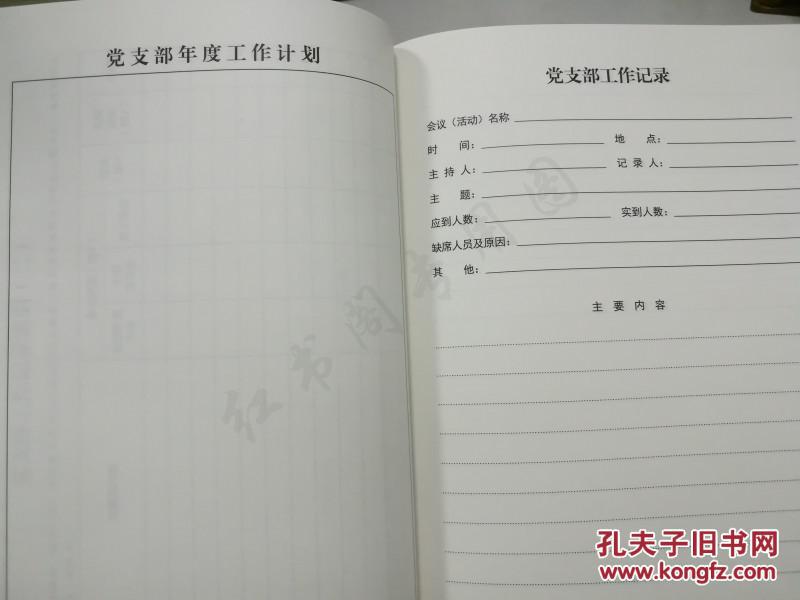 党支部年度工作计划
党支部工作记录
会议（活动）名称
时 间： 地 点：
主 持 人： 记 录 人：
主 题：
应到人数： 实到人数：
缺席人员及原因：
其 他：
主 要 内 容
红书阁书用图
孔夫子旧书网
www.kongfz.com